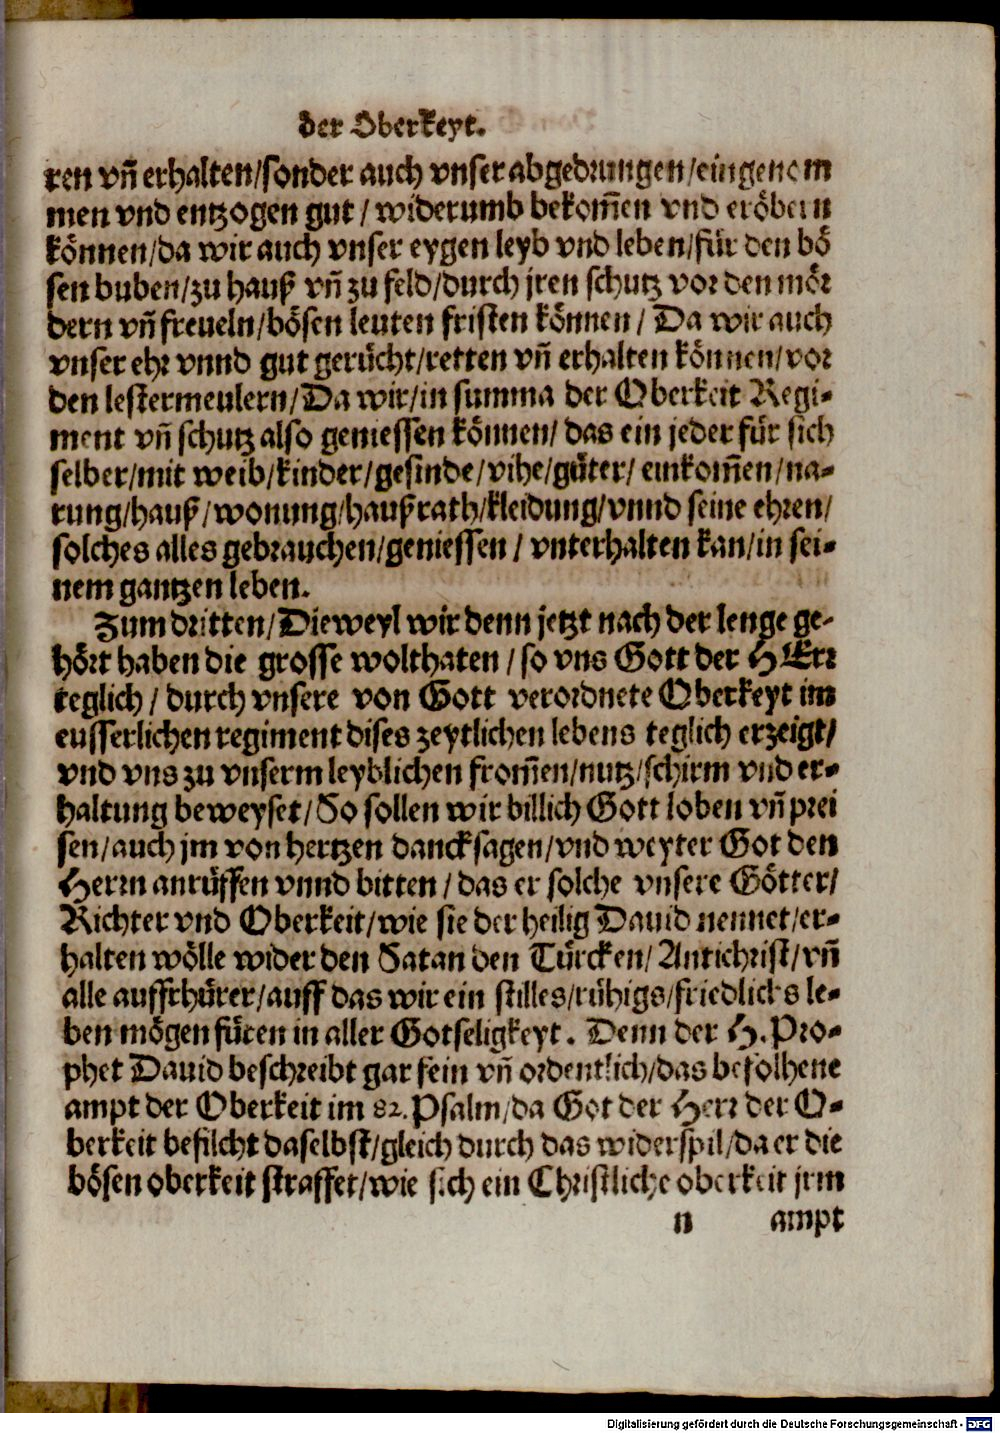 der Oberkeyt.
ren vñ erhalten/sonder auch vnser abgedrungen/eingenom
men vnd entzogen gut / widerumb bekom̃en vnd eröbern
können/da wir auch vnser eygen leyb vnd leben/für den bö
sen buben/zu hauß vñ zu feld/durch jren schutz vor den mör
dern vñ freueln/bösen leuten fristen können / Da wir auch
vnser ehr vnnd gut gerücht/retten vñ erhalten können/vor
den lestermeulern/Da wir/in summa der Oberkeit Regi-
ment vñ schutz also geniessen können/ das ein jeder für sich
selber/mit weib/kinder/gesinde/vihe/güter/ einkom̃en/na-
rung/hauß/wonung/haußrath/kleidung/vnnd seine ehren/
solches alles gebrauchen/geniessen / vnterhalten kan/in sei-
nem gantzen leben.
Zum dritten/Dieweyl wir denn jetzt nach der lenge ge-
hört haben die grosse wolthaten / so vns Gott der HErr
teglich / durch vnsere von Gott verordnete Oberkeyt im
eusserlichen regiment dises zeytlichen lebens teglich erzeigt/
vnd vns zu vnserm leyblichen from̃en/nutz/schirm vnd er-
haltung beweyset/So sollen wir billich Gott loben vñ prei
sen/auch jm von hertzen dancksagen/vnd weyter Got den
Herrn anrüffen vnnd bitten / das er solche vnsere Götter/
Richter vnd Oberkeit/wie sie der heilig Dauid nennet/er-
halten wölle wider den Satan den Türcken/ Antichrist/vñ
alle auffrhürer/auff das wir ein stilles/rühigs/friedlichs le-
ben mögen füren in aller Gotseligkeyt. Denn der H. Pro-
phet Dauid beschreibt gar fein vñ ordentlich/das befolhene
ampt der Oberkeit im 82. Psalm/da Got der Herr der O-
berkeit befilcht daselbst/gleich durch das widerspil/da er die
bösen oberkeit straffet/wie sich ein Christliche oberkeit jrm
n ampt
Digitalisierung gefördert durch die Deutsche Forschungsgemeinschaft - DFG